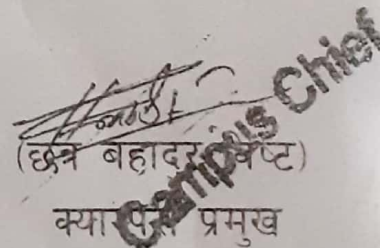 (छत्र बहादुर विष्ट)
क्याम्पस प्रमुख
Campus Chief